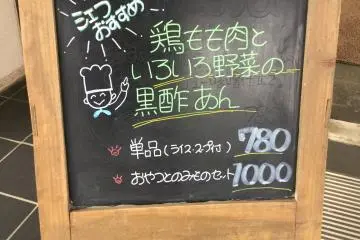 シェフ
おすすめ
鶏もも肉と
いろいろ野菜の
黒酢あん
単品(ライス・スープ付) 780
おやつとのみものセット 1000